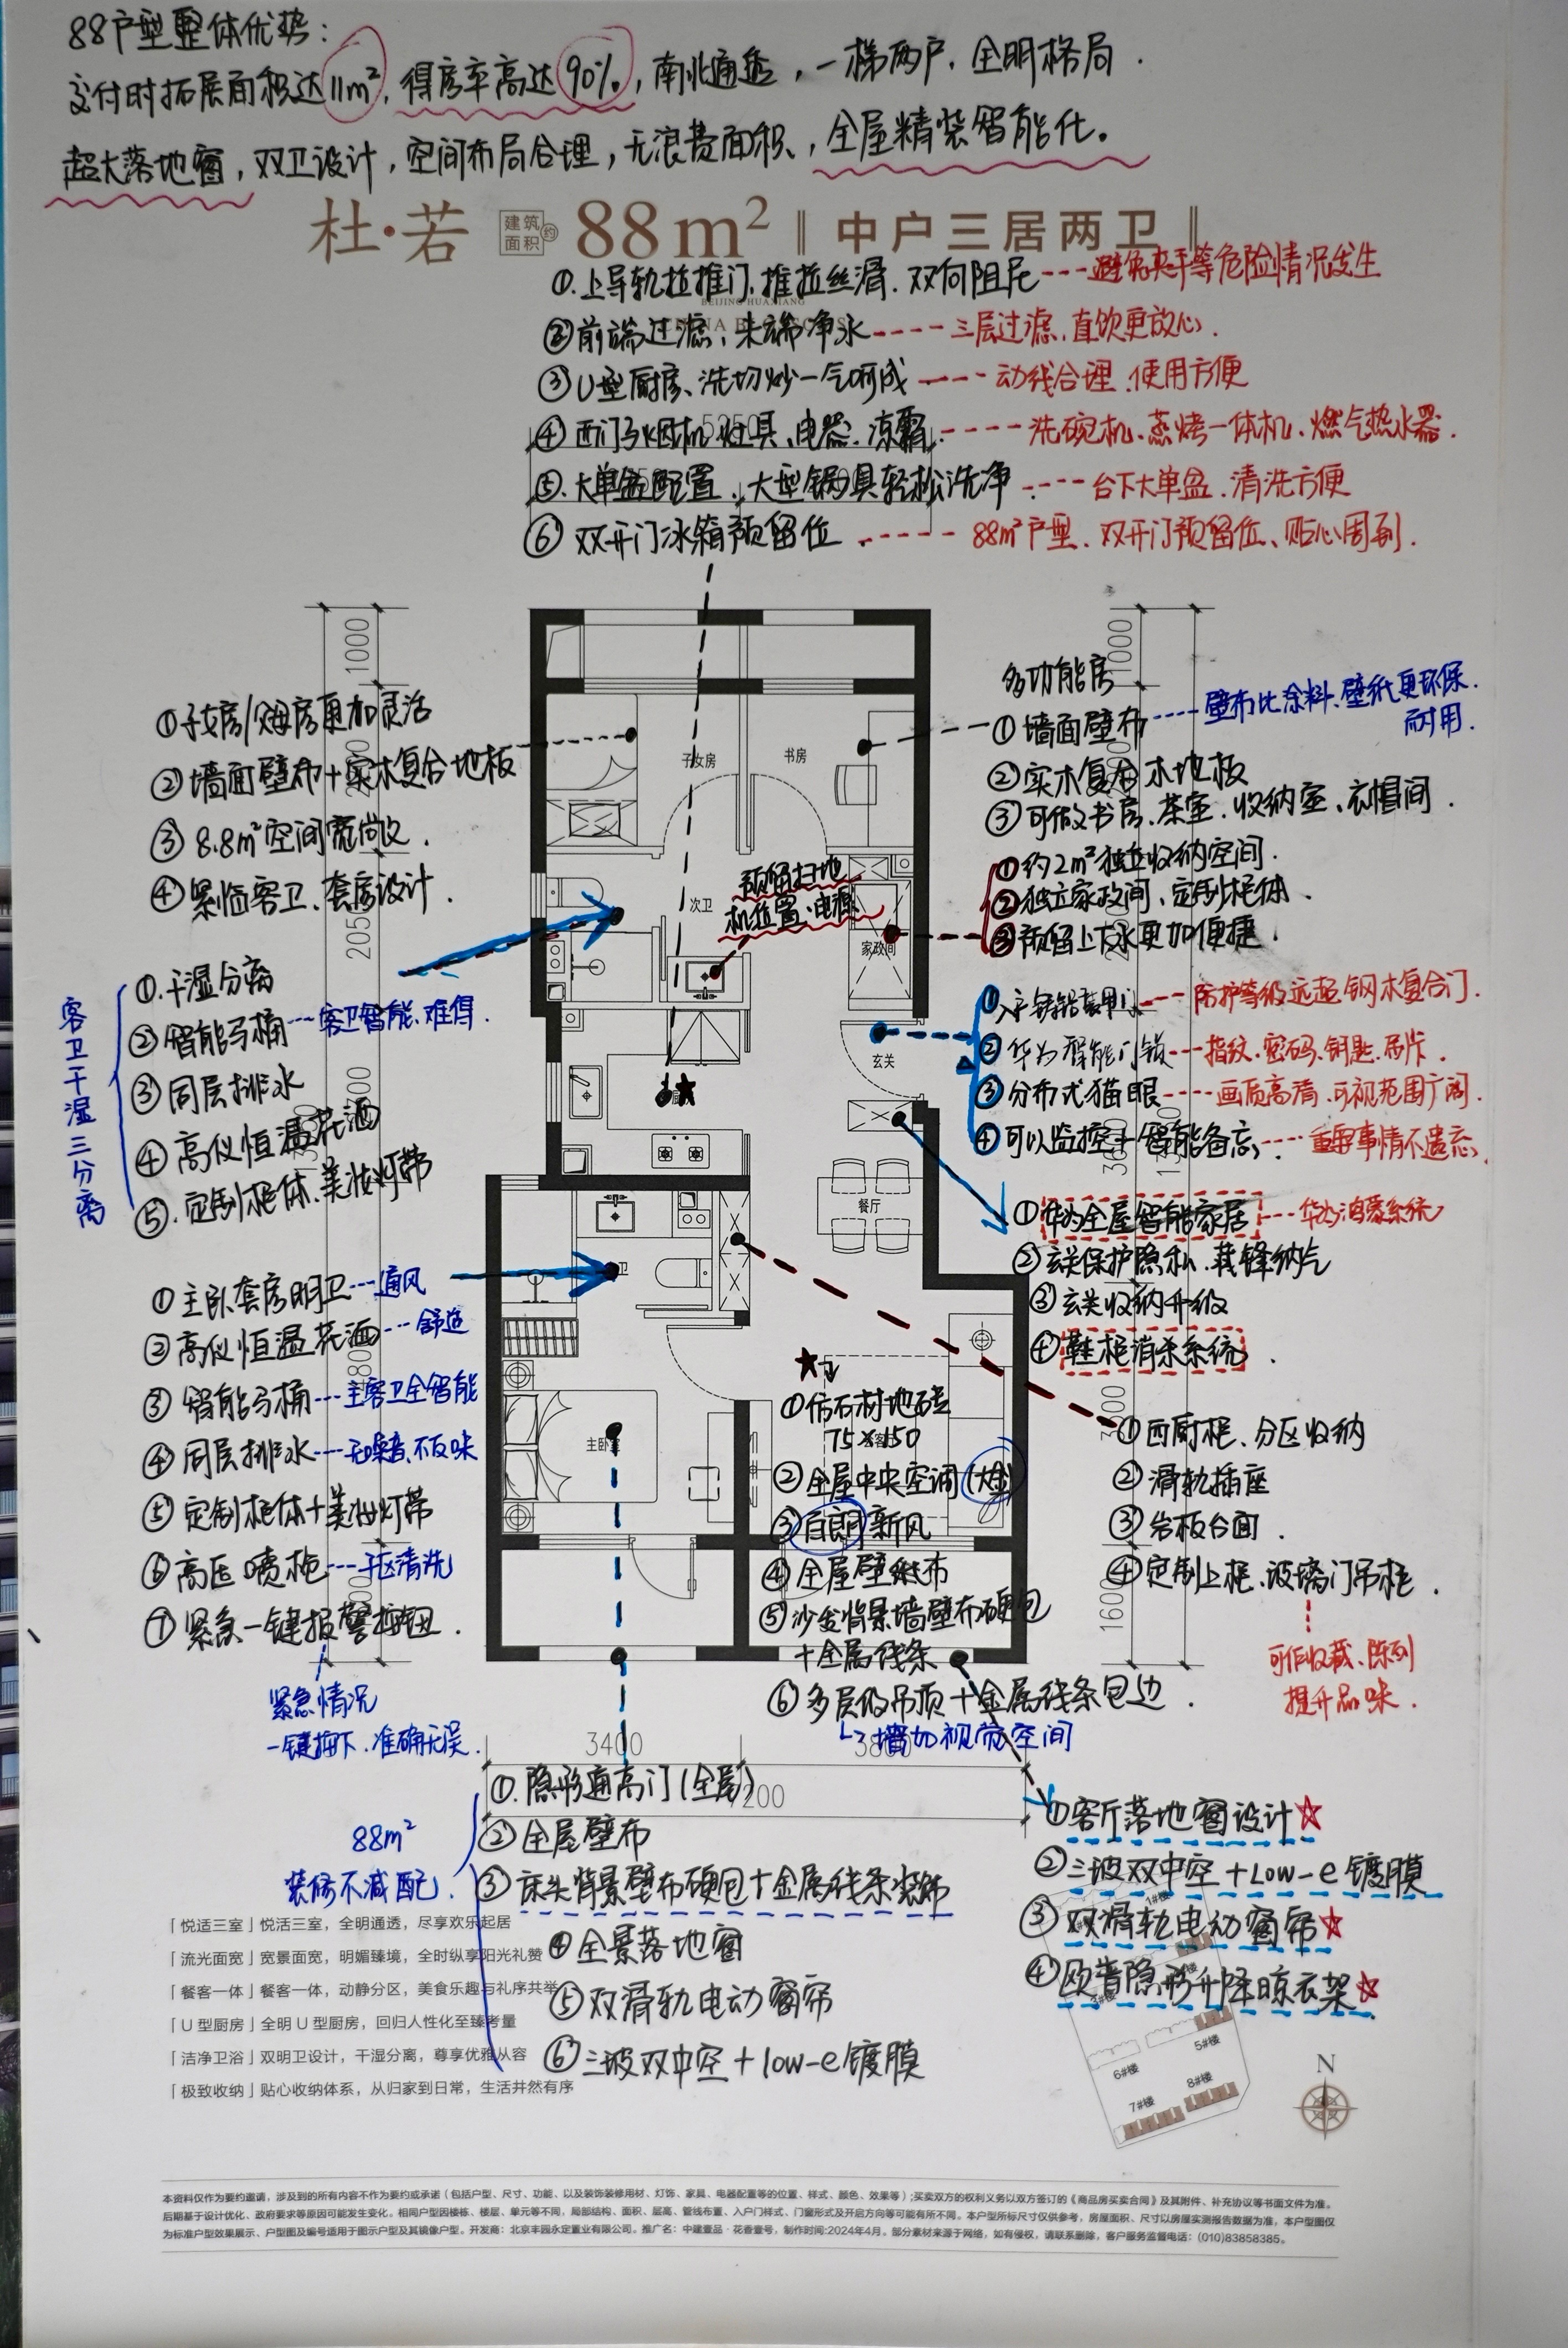 88户型整体优势：
交付时拓展面积达11m²，得房率高达90%，南北通透，一梯两户，全明格局．
超大落地窗，双卫设计，空间布局合理，无浪费面积，全屋精装智能化。
杜·若 建筑面积约 88m² 中户三居两卫
BEIJING HUAXIANG
①.上导轨拉推门、推拉丝滑．双向阻尼---避免夹手等危险情况发生
②前端过滤，末端净水----三层过滤，直饮更放心．
③U型厨房、洗切炒一气呵成----动线合理．使用方便
④西门子烟机、灶具、电器．凉霸．----洗碗机、蒸烤一体机、燃气热水器．
⑤.大单盆配置，大型锅具轻松洗净----台下大单盆．清洗方便
⑥双开门冰箱预留位．-----88m²户型、双开门预留位、贴心周到．
1000
1000
①子女房/父母房更加灵活
②墙面壁布+实木复合地板
③8.8m²空间宽敞．
④紧临客卫、套房设计．
2050
子女房
书房
多功能房
①墙面壁布----壁布比涂料、壁纸更环保．
耐用．
②实木复合木地板
③可做书房、茶室、收纳室、衣帽间．
①约2m²独立收纳空间．
②独立家政间，定制柜体．
③预留上下水更加便捷．
次卫
预留扫地
机位置·电源
家政间
客卫干湿三分离
①.干湿分离
②智能马桶---客卫智能、难得．
③同层排水
④高仪恒温花洒
⑤.定制柜体、美妆灯带
玄关
①入户铸铝装甲门---防护等级远超钢木复合门．
②华为智能门锁---指纹、密码、钥匙、吊卡．
③分布式猫眼----画质高清，可视范围广阔．
④可以监控+智能备忘---重要事情不遗忘．
餐厅
①华为全屋智能家居---华为鸿蒙系统
②玄关保护隐私、藏锋纳气
③玄关收纳升级
④鞋柜消杀系统．
①主卧套房明卫---通风
②高仪恒温花洒---舒适
③智能马桶---主客卫全智能
④同层排水---无噪音、不反味
⑤定制柜体+美妆灯带
⑥高压喷枪---分区清洗
⑦紧急一键报警按钮．
紧急情况
一键按下．准确无误．
主卧室
①仿石材地砖
75×150
②全屋中央空调(大金)
③百朗新风
④全屋壁布
⑤沙发背景墙壁布硬包
+金属线条
⑥多层级吊顶+金属线条包边．
↳增加视觉空间
①西厨柜、分区收纳
②滑轨插座
③岩板台面．
④定制上柜、玻璃门吊柜．
可作收藏、陈列
提升品味．
1600
3400
7200
88m²
装修不减配．
①.隐形通高门(全屋)
②全屋壁布
③床头背景壁布硬包+金属线条装饰
④全景落地窗
⑤双滑轨电动窗帘
⑥三玻双中空+low-e镀膜
①客厅落地窗设计☆
②三玻双中空+Low-e镀膜
③双滑轨电动窗帘☆
④欧普隐形升降晾衣架☆
「悦适三室」悦活三室，全明通透，尽享欢乐起居
「流光面宽」宽景面宽，明媚臻境，全时纵享阳光礼赞
「餐客一体」餐客一体，动静分区，美食乐趣与礼序共举
「U型厨房」全明U型厨房，回归人性化至臻考量
「洁净卫浴」双明卫设计，干湿分离，尊享优雅从容
「极致收纳」贴心收纳体系，从归家到日常，生活井然有序
1#楼
5#楼
6#楼
8#楼
7#楼
N
本资料仅作为要约邀请，涉及到的所有内容不作为要约或承诺（包括户型、尺寸、功能、以及装饰装修用材、灯饰、家具、电器配置等的位置、样式、颜色、效果等）;买卖双方的权利义务以双方签订的《商品房买卖合同》及其附件、补充协议等书面文件为准。
后期基于设计优化、政府要求等原因可能发生变化。相同户型因楼栋、楼层、单元等不同，局部结构、面积、层高、管线布置、入户门样式、门窗形式及开启方向等可能有所不同。本户型所标尺寸仅供参考，房屋面积、尺寸以房屋实测报告数据为准，本户型图仅
为标准户型效果展示、户型图及编号适用于图示户型及其镜像户型。开发商：北京丰园永定置业有限公司。推广名：中建壹品·花香壹号，制作时间:2024年4月。部分素材来源于网络，如有侵权，请联系删除，客户服务监督电话：(010)83858385。